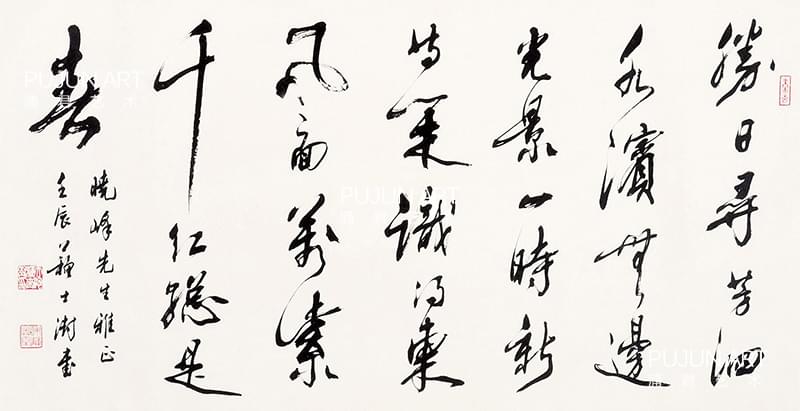 勝日尋芳泗
水濱無邊
光景一時新
等閑識得東
風面萬紫
千紅總是
春
曉峰先生雅正
壬辰蘇士澍書
PUJUN ART
蒲君艺术
PUJUN ART
蒲君艺术
PUJUN ART
蒲君艺术